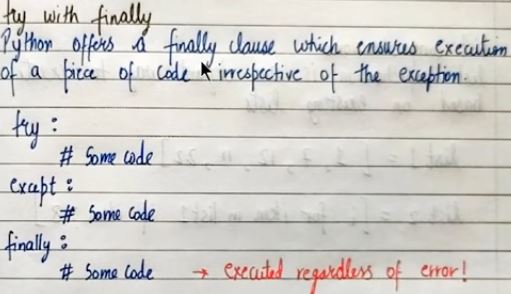 try with finally
Python offers a finally clause which ensures execution
of a piece of code irrespective of the exception.
try :
# Some code
except :
# Some code
finally :
# Some code → executed regardless of error!